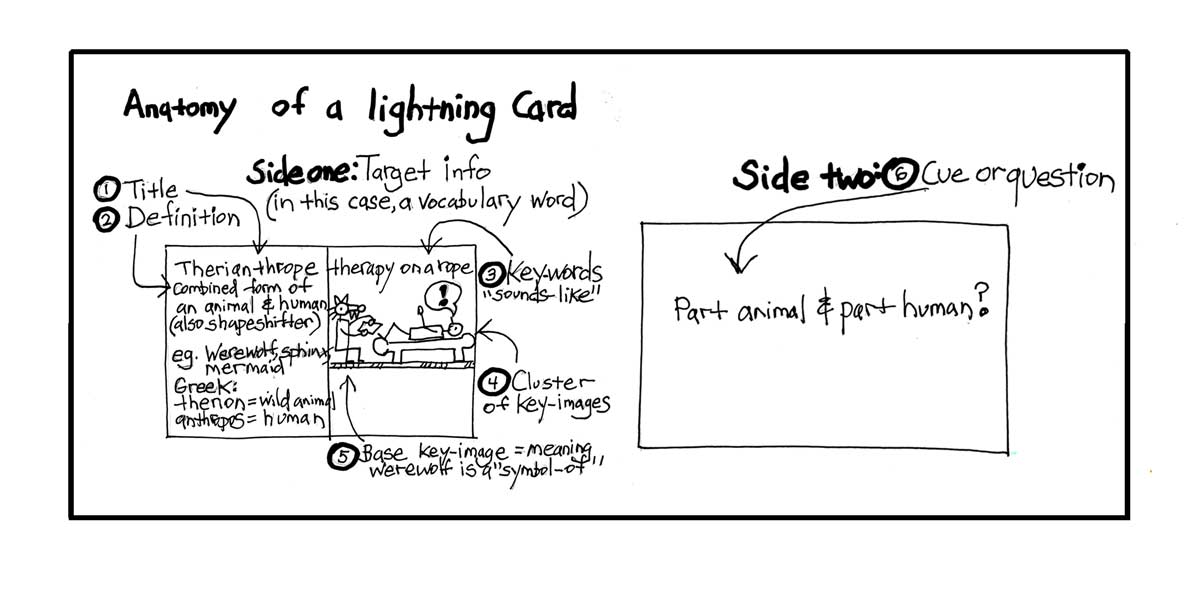 Anatomy of a lightning Card
Side one: Target info
(in this case, a vocabulary word)
① Title
② Definition
Therianthrope
combined form of
an animal & human
(also shapeshifter)
eg. Werewolf, sphinx,
mermaid
Greek:
therion = wild animal
anthropos = human
therapy on a rope
!
③ Key-words
"sounds-like"
④ Cluster
of key-images
⑤ Base key-image = meaning
werewolf is a "symbol-of"
Side two: ⑥ Cue or question
Part animal & part human?